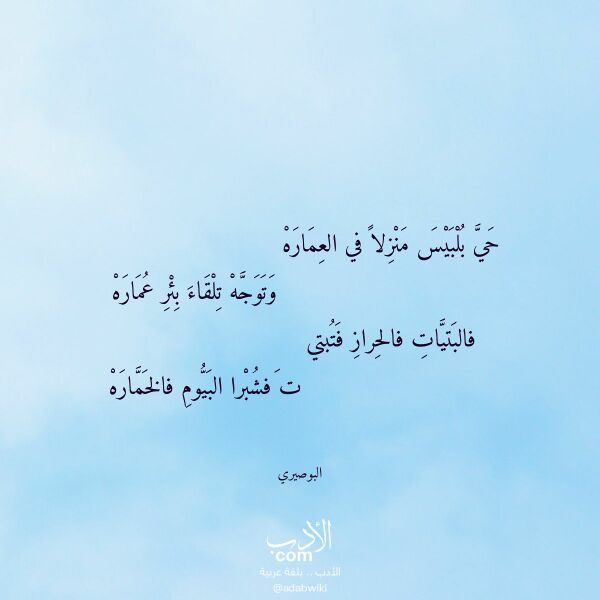 حَيَّ بُلْبَيْسَ مَنْزِلاً في العِمَارَهْ
وَتَوَجَّهْ تِلْقَاءَ بِئْرِ عُمَارَهْ
فالبَتيَّاتِ فالحِرازِ فَتُبتي
تَ فشُبْرا البَيُّومِ فالخَمَّارَهْ
البوصيري
الأدب
com
الأدب .. بلغة عربية
@adabwiki